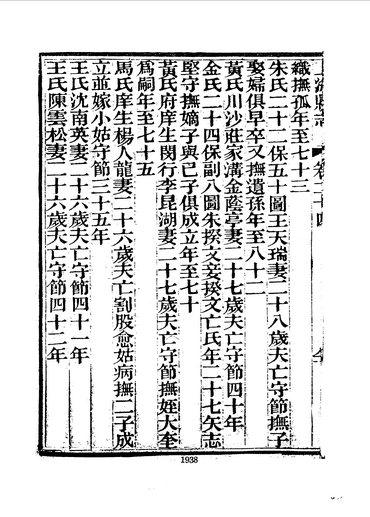 上海縣志 卷二十四
織撫孤年至七十三
朱氏二十二保五十圖王天瑞妻二十八歲夫亡守節撫子
娶婦俱早卒又撫遺孫年至八十二
黃氏川沙莊家溝金蔭亭妻二十七歲夫亡守節四十年
金氏二十四保副八圖朱揆文妾揆文亡氏年二十七矢志
堅守撫嫡子與己子俱成立年至七十
黃氏府庠生閔行李昆湖妻二十七歲夫亡守節撫姪大奎
爲嗣年至七十五
馬氏庠生楊人龍妻二十六歲夫亡割股愈姑病撫二子成
立並嫁小姑守節三十五年
王氏沈南英妻二十六歲夫亡守節四十一年
王氏陳雲松妻二十六歲夫亡守節四十二年
1938